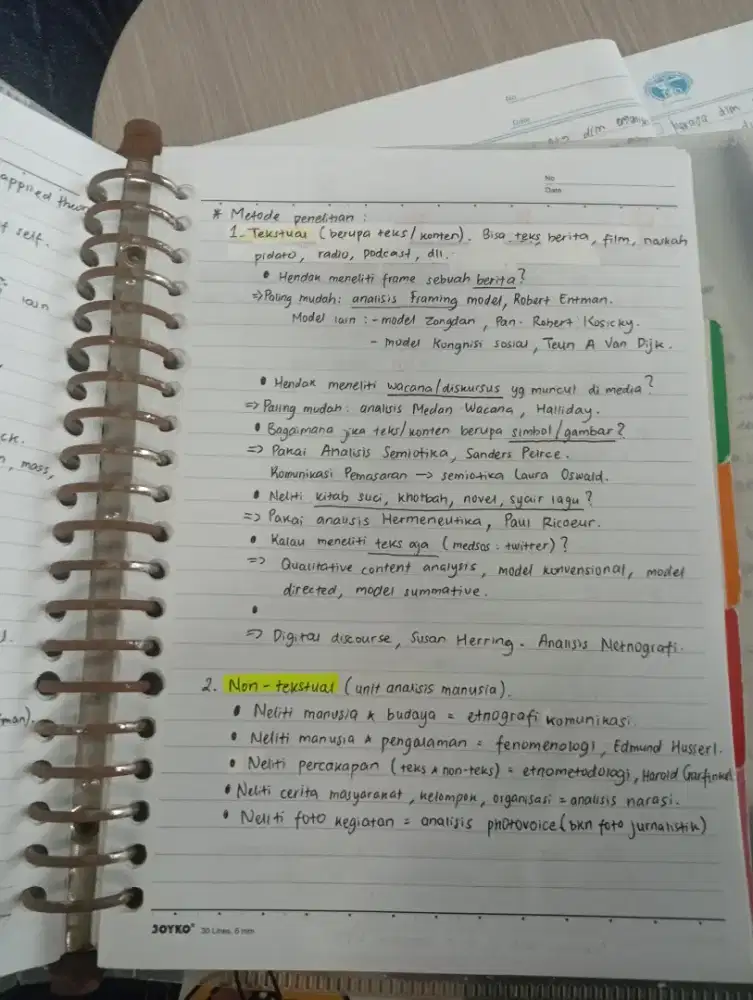 applied theor
f self.
lain
ck.
n, mass,
man).
No
Date
dlm organis
harapa dlm
No
Date
* Metode penelitian :
1. Tekstual (berupa teks/konten). Bisa teks berita, film, naskah
pidato, radio, podcast, dll.
• Hendak meneliti frame sebuah berita?
=> Paling mudah: analisis Framing model, Robert Entman.
Model lain : - model Zongdan, Pan. Robert Kosicky.
- model Kongnisi sosial, Teun A Van Dijk.
• Hendak meneliti wacana/diskursus yg muncul di media?
=> Paling mudah: analisis Medan Wacana, Halliday.
• Bagaimana jika teks/konten berupa simbol/gambar?
=> Pakai Analisis Semiotika, Sanders Peirce.
Komunikasi Pemasaran → semiotika Laura Oswald.
• Neliti kitab suci, khotbah, novel, syair lagu?
=> Pakai analisis Hermeneutika, Paul Ricoeur.
• Kalau meneliti teks aja (medsos : twitter)?
=> Qualitative content analysis, model konvensional, model
directed, model summative.
•
=> Digital discourse, Susan Herring. Analisis Netnografi.
2. Non-tekstual (unit analisis manusia).
• Neliti manusia & budaya = etnografi komunikasi.
• Neliti manusia & pengalaman = fenomenologi, Edmund Husserl.
• Neliti percakapan (teks & non-teks) = etnometodologi, Harold Garfinkel
• Neliti cerita masyarakat, kelompok, organisasi = analisis narasi.
• Neliti foto kegiatan = analisis photovoice (bkn foto jurnalistik)
JOYKO® 30 Lines, 6 mm